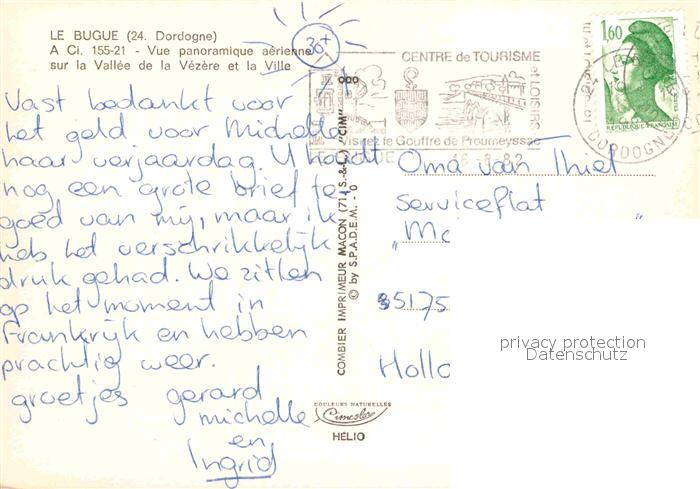 LE BUGUE (24. Dordogne)
A Ci. 155-21 - Vue panoramique aérienne
sur la Vallée de la Vézère et la Ville
30+
Vast bedankt voor
het geld voor Michelle
haar verjaardag. U houdt
nog een grote brief te
goed van mij, maar ik
heb het verschrikkelijk
druk gehad. We zitten
op het moment in
Frankrijk en hebben
prachtig weer.
groetjes gerard
michelle
en
Ingrid
COMBIER IMPRIMEUR MACON (71. S.-&-L.) "CIM"
© by S.P.A.D.E.M. - 0
COULEURS NATURELLES
Cimcolor
HÉLIO
CENTRE de TOURISME
et LOISIRS
Visitez le Gouffre de Proumeyssac
16-8-82
DORDOGNE
1,60
REPUBLIQUE FRANÇAISE
Oma van Thiel
serviceflat
"Me "
5175
Hollo
privacy protection
Datenschutz